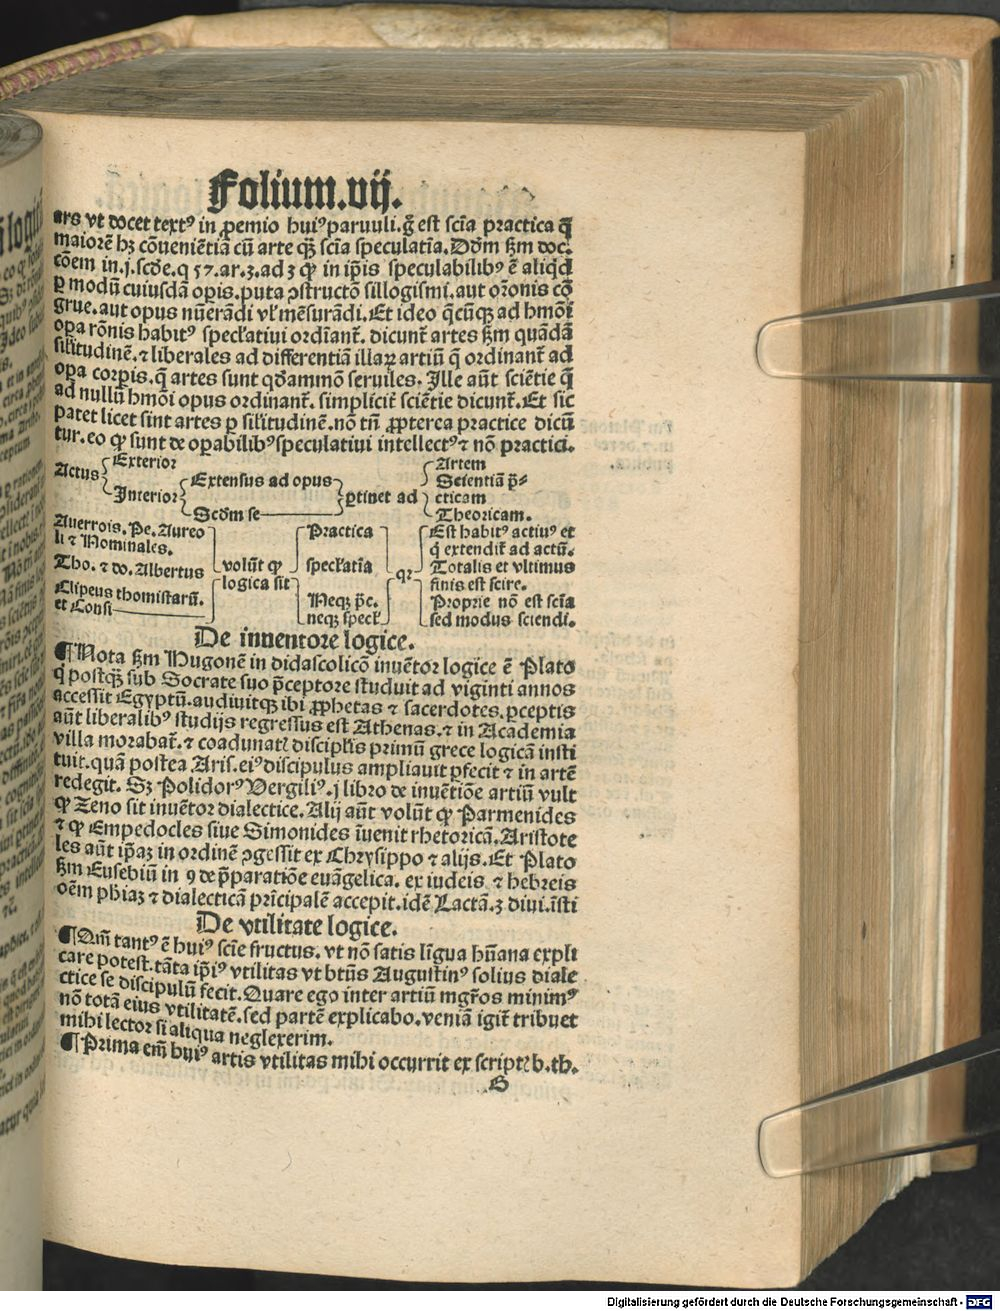 Folium.vij.
ars vt docet textꝰ in ꝓemio huiꝰ paruuli.g̃ est scĩa practica q̃
maiorẽ hꝫ cõueniẽtiã cũ arte qꝫ̃ scĩa speculatĩa.Dõm ẜm doc.
cõem in.j.scðe.q 57.ar.3.ad 3 ꝙ in ip̃is speculabilibꝰ ẽ aliqd̃
ꝑ modũ cuiusdã oꝑis.puta ꝯstructõ sillogismi.aut or̃onis cõ
grue.aut opus nũerãdi vl̃ mẽsurãdi.Et ideo q̃cũqꝫ ad hmõi
oꝑa rõnis habitꝰ specl̃atiui ordĩant̃. dicunt̃ artes ẜm quãdã
sil̃itudinẽ.⁊ liberales ad differentiã illaꝝ artiũ q̃ ordinant̃ ad
oꝑa corꝑis.q̃ artes sunt qd̃ammõ seruiles. Ille aũt sciẽtie q̃
ad nullũ hmõi opus ordinant̃. simplicit̃ sciẽtie dicunt̃.Et sic
patet licet sint artes ꝑ sil̃itudinẽ.nõ tñ ꝓpterca practice dicũ
tur.eo ꝙ sunt de oꝑabilibꝰ speculatiui intellectꝰ ⁊ nõ practici.
Actus
Exterior
Interior
Extensus ad opus
Scðm se
ꝑtinet ad
Artem
Scientiã p̃-
cticam
Theoricam.
Auerrois.Pe.Aureo
li ⁊ Nominales.
Tho. ⁊ do. Albertus
Clipeus thomistarũ.
et Consi
volũt ꝙ
logica sit
Practica
specl̃atĩa
Neqꝫ p̃c.
neqꝫ specl̃
qꝛ
Est habitꝰ actiuꝰ et
q̃ extendit̃ ad actũ.
Totalis et vltimus
finis est scire.
Proprie nõ est scĩa
sed modus sciendi.
De inuentore logice.
¶Nota ẜm Hugonẽ in didascolicõ inuẽtor logice ẽ Plato
q̃ postqꝫ̃ sub Socrate suo p̃ceptore studuit ad viginti annos
accessit Egyptũ.audiuitqꝫ ibi ꝓphetas ⁊ sacerdotes.ꝑceptis
aũt liberalibꝰ studijs regressus est Athenas.⁊ in Academia
villa morabat̃.⁊ coadunatꝭ discipl̃is primũ grece logicã insti
tuit.quã postea Aris.eiꝰ discipulus ampliauit ꝑfecit ⁊ in artẽ
redegit. Sꝫ Polidorꝰ Vergiliꝰ.j libro de inuẽtiõe artiũ vult
ꝙ Zeno sit inuẽtor dialectice.Alij aũt volũt ꝙ Parmenides
⁊ ꝙ Empedocles siue Simonides ĩuenit rhetoricã.Aristote
les aũt ip̃aꝫ in ordinẽ ꝯgessit ex Chrysippo ⁊ alijs.Et Plato
ẜm Eusebiũ in 9 de p̃paratiõe euãgelica. ex iudeis ⁊ hebreis
oẽm phiaꝫ ⁊ dialecticã prĩcipalẽ accepit.idẽ Lactã.3 diui.ĩsti
De vtilitate logice.
¶Qm̃ tantꝰ ẽ huiꝰ scĩe fructus. vt nõ satis lĩgua hũana expli
care potest.tãta ip̃iꝰ vtilitas vt btũs Augustinꝰ solius diale
ctice se discipulũ fecit.Quare ego inter artiũ mgr̃os minimꝰ
nõ totã eius vtilitatẽ.sed partẽ explicabo.veniã igit̃ tribuet
mihi lector si aliqua neglexerim.
¶Prima em̃ huiꝰ artis vtilitas mihi occurrit ex scriptꝭ b.th.
B
Digitalisierung gefördert durch die Deutsche Forschungsgemeinschaft - DFG